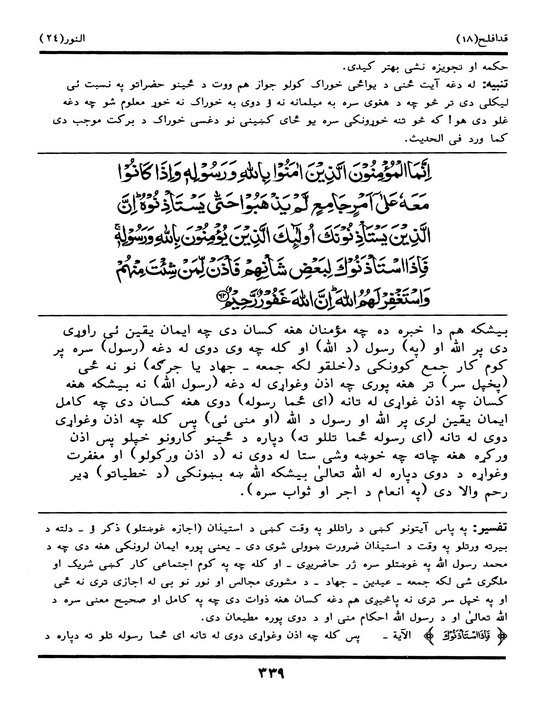 قدافلح(۱۸) النور(۲٤)
حکمه او تجویزه نشی بهتر کیدی.
تنبیه: له دغه آیت څنی د یواځی خوراک کولو جواز هم ووت د ځینو حضراتو په نسبت ئی
لیکلی دی تر څو چه د هغوی سره به میلمانه نه ؤ دوی به خوراک نه خوړ معلوم شو چه دغه
غلو دی هو! که څو تنه خوړونکی سره یو ځای کښینی نو دغسی خوراک د برکت موجب دی
کما ورد فی الحدیث.
اِنَّمَا الْمُؤْمِنُوْنَ الَّذِیْنَ اٰمَنُوْا بِاللهِ وَرَسُوْلِهٖ وَاِذَا كَانُوْا
مَعَهٗ عَلٰٓى اَمْرٍ جَامِعٍ لَّمْ یَذْهَبُوْا حَتّٰى یَسْتَاْذِنُوْهُ ؕ اِنَّ
الَّذِیْنَ یَسْتَاْذِنُوْنَكَ اُولٰٓىِٕكَ الَّذِیْنَ یُؤْمِنُوْنَ بِاللهِ وَرَسُوْلِهٖ ۚ
فَاِذَا اسْتَاْذَنُوْكَ لِبَعْضِ شَاْنِهِمْ فَاْذَنْ لِّمَنْ شِئْتَ مِنْهُمْ
وَاسْتَغْفِرْ لَهُمُ اللهَ ؕ اِنَّ اللهَ غَفُوْرٌ رَّحِیْمٌ ﴿۶۲﴾
بیشکه هم دا خبره ده چه مؤمنان هغه کسان دی چه ایمان یقین ئی راوړی
دی پر الله او (په) رسول (د الله) او کله چه وی دوی له دغه (رسول) سره پر
کوم کار جمع کوونکی د(خلقو لکه جمعه ـ جهاد یا جرګه) نو نه ځی
(پخپل سر) تر هغه پوری چه اذن وغواړی له دغه (رسول الله) نه بیشکه هغه
کسان چه اذن غواړی له تانه (ای رسوله) دوی هغه کسان دی چه کامل
ایمان یقین لری پر الله او رسول د الله (او منی ئی) پس کله چه اذن وغواړی
دوی له تانه (ای رسوله څما تللو ته) دپاره د ځینو کارونو خپلو پس اذن
ورکړه هغه چاته چه خوښه وشی ستا له دوی نه (د اذن ورکولو) او مغفرت
وغواړه د دوی دپاره له الله تعالیٰ بیشکه الله ښه بښونکی (د خطیاتو) ډیر
رحم والا دی (په انعام د اجر او ثواب سره).
تفسیر: په پاس آیتونو کښی د راتللو په وقت کښی د استیذان (اجازه غوښتلو) ذکر ؤ ـ دلته د
بیرته ورتلو په وقت د استیذان ضرورت ښوولی شوی دی ـ یعنی پوره ایمان لرونکی هغه دی چه د
محمد رسول الله په غوښتلو سره ژر حاضریږی ـ او کله چه په کوم اجتماعی کار کښی شریک او
ملګری شی لکه جمعه ـ عیدین ـ جهاد ـ د مشوری مجالس او نور نو بی له اجازی تری نه ځی
او په خپل سر تری نه پاڅیږی هم دغه کسان هغه ذوات دی چه په کامل او صحیح معنی سره د
الله تعالیٰ او د رسول الله احکام منی او د دوی پوره مطیعان دی.
﴿ فَاِذَا اسْتَاْذَنُوْكَ ﴾ الآیة ـ پس کله چه اذن وغواړی دوی له تانه ای څما رسوله تلو ته دپاره د
۳۳۹